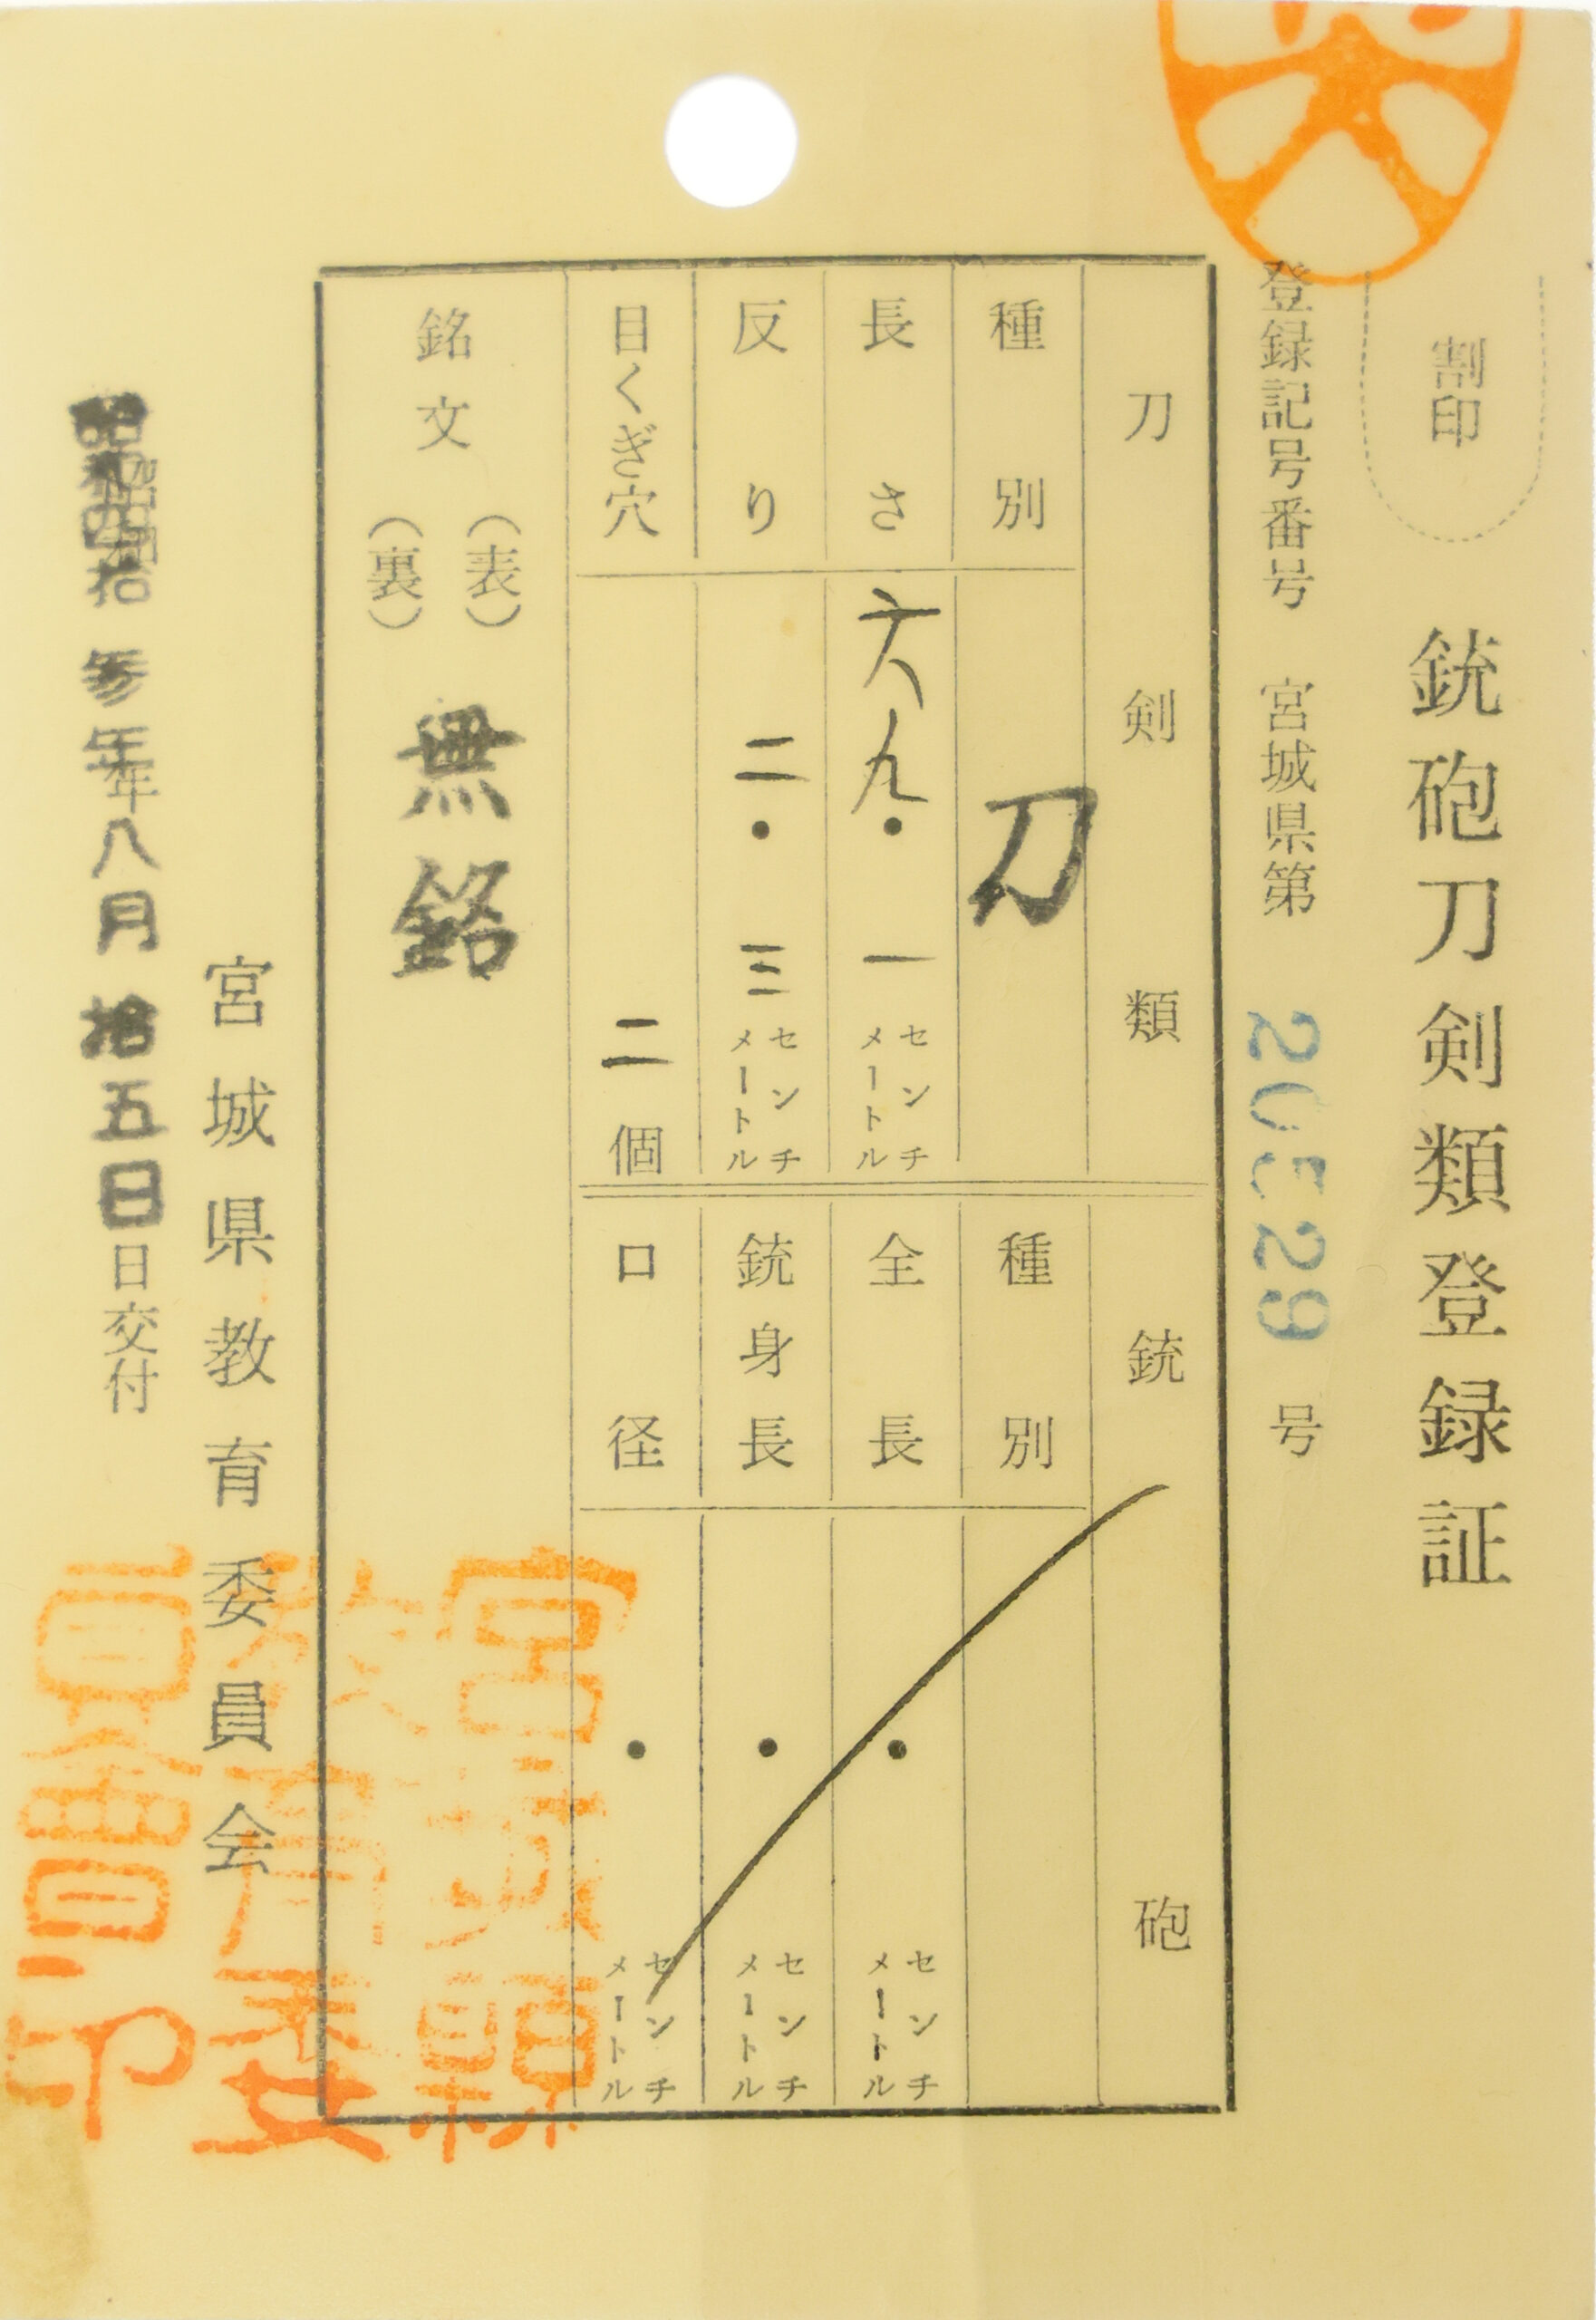 銃砲刀剣類登録証
割印
登録記号番号 宮城県第 20529 号
刀剣類
種別 刀
長さ 六九・一 センチメートル
反り 二・三 センチメートル
目くぎ穴 二 個
銃砲
種別
全長 ・ センチメートル
銃身長 ・ センチメートル
口径 ・ センチメートル
銘文 (表) 無銘
(裏)
宮城県教育委員会
拾参年年八月拾五日日交付
宮城縣
教育委
員會印